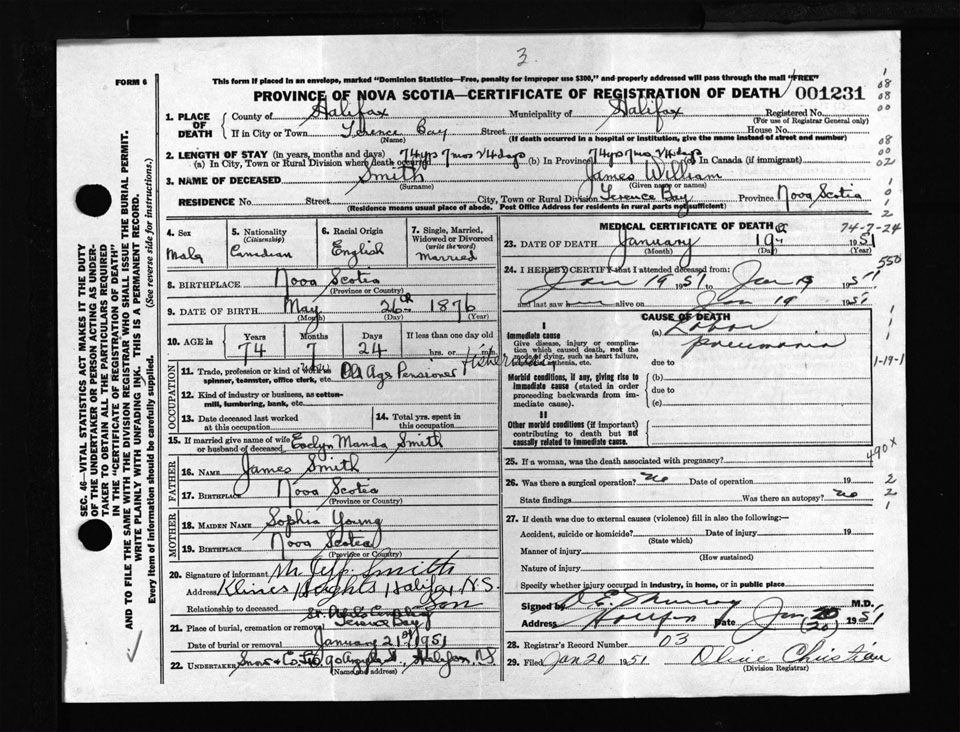 3
FORM 6
This form if placed in an envelope, marked "Dominion Statistics—Free, penalty for improper use $300," and properly addressed will pass through the mail "FREE"
PROVINCE OF NOVA SCOTIA—CERTIFICATE OF REGISTRATION OF DEATH 001231
1. PLACE OF DEATH
County of Halifax Municipality of Halifax Registered No.
(For use of Registrar General only)
If in City or Town Terence Bay Street House No.
(Name) (If death occurred in a hospital or institution, give the name instead of street and number)
2. LENGTH OF STAY (in years, months and days)
(a) In City, Town or Rural Division where death occurred 74 yrs 7 mos 24 days (b) In Province 74 yrs 7 mos 24 days (c) In Canada (if immigrant)
3. NAME OF DECEASED Smith James William
(Surname) (Given name or names)
RESIDENCE No. Street City, Town or Rural Division Terence Bay Province Nova Scotia
(Residence means usual place of abode. Post Office Address for residents in rural parts not sufficient)
4. Sex Male
5. Nationality (Citizenship) Canadian
6. Racial Origin English
7. Single, Married, Widowed or Divorced (write the word) Married
8. BIRTHPLACE Nova Scotia
(Province or Country)
9. DATE OF BIRTH May 26th 1876
(Month) (Day) (Year)
10. AGE in Years Months Days If less than one day old
74 7 24 hrs. or min.
OCCUPATION
11. Trade, profession or kind of work as spinner, teamster, office clerk, etc. Old Age Pensioner Fisherman
12. Kind of industry or business, as cotton-mill, lumbering, bank, etc.
13. Date deceased last worked at this occupation
14. Total yrs. spent in this occupation
15. If married give name of wife or husband of deceased Evelyn Manda Smith
FATHER
16. NAME James Smith
17. BIRTHPLACE Nova Scotia
(Province or Country)
MOTHER
18. MAIDEN NAME Sophia Young
19. BIRTHPLACE Nova Scotia
(Province or Country)
20. Signature of informant Smith
Address Klines Heights Halifax N.S.
Relationship to deceased Son
21. Place of burial, cremation or removal Terence Bay
Date of burial or removal January 21st 1951
22. UNDERTAKER Snow & Co. Ltd 90 Argyle St, Halifax, N.S.
(Name and address)
MEDICAL CERTIFICATE OF DEATH 74-7-24
23. DATE OF DEATH January 19th 1951
(Month) (Day) (Year)
24. I HEREBY CERTIFY that I attended deceased from:
Jan 19 1951 to Jan 19 1951
and last saw him alive on Jan 19 1951
550
CAUSE OF DEATH
I
Immediate cause
Give disease, injury or complication which caused death, not the mode of dying, such as heart failure, asphyxia, asthenia, etc.
(a) Lobar pneumonia
due to
1-19-1
Morbid conditions, if any, giving rise to immediate cause (stated in order proceeding backwards from immediate cause).
(b)
due to
(c)
II
Other morbid conditions (if important) contributing to death but not causally related to immediate cause.
490x
25. If a woman, was the death associated with pregnancy?
26. Was there a surgical operation? No Date of operation 19
State findings Was there an autopsy? No
27. If death was due to external causes (violence) fill in also the following:—
Accident, suicide or homicide? Date of injury 19
(State which)
Manner of injury
(How sustained)
Nature of injury
Specify whether injury occurred in industry, in home, or in public place
Signed by M.D.
Address Halifax Date Jan 20 (20) 1951
28. Registrar's Record Number 03
29. Filed Jan 20 1951 Olive Christian
(Division Registrar)
SEC. 46—VITAL STATISTICS ACT MAKES IT THE DUTY OF THE UNDERTAKER OR PERSON ACTING AS UNDERTAKER TO OBTAIN ALL THE PARTICULARS REQUIRED IN THE "CERTIFICATE OF REGISTRATION OF DEATH"
AND TO FILE THE SAME WITH THE DIVISION REGISTRAR WHO SHALL ISSUE THE BURIAL PERMIT.
WRITE PLAINLY WITH UNFADING INK. THIS IS A PERMANENT RECORD.
Every item of information should be carefully supplied. (See reverse side for instructions.)